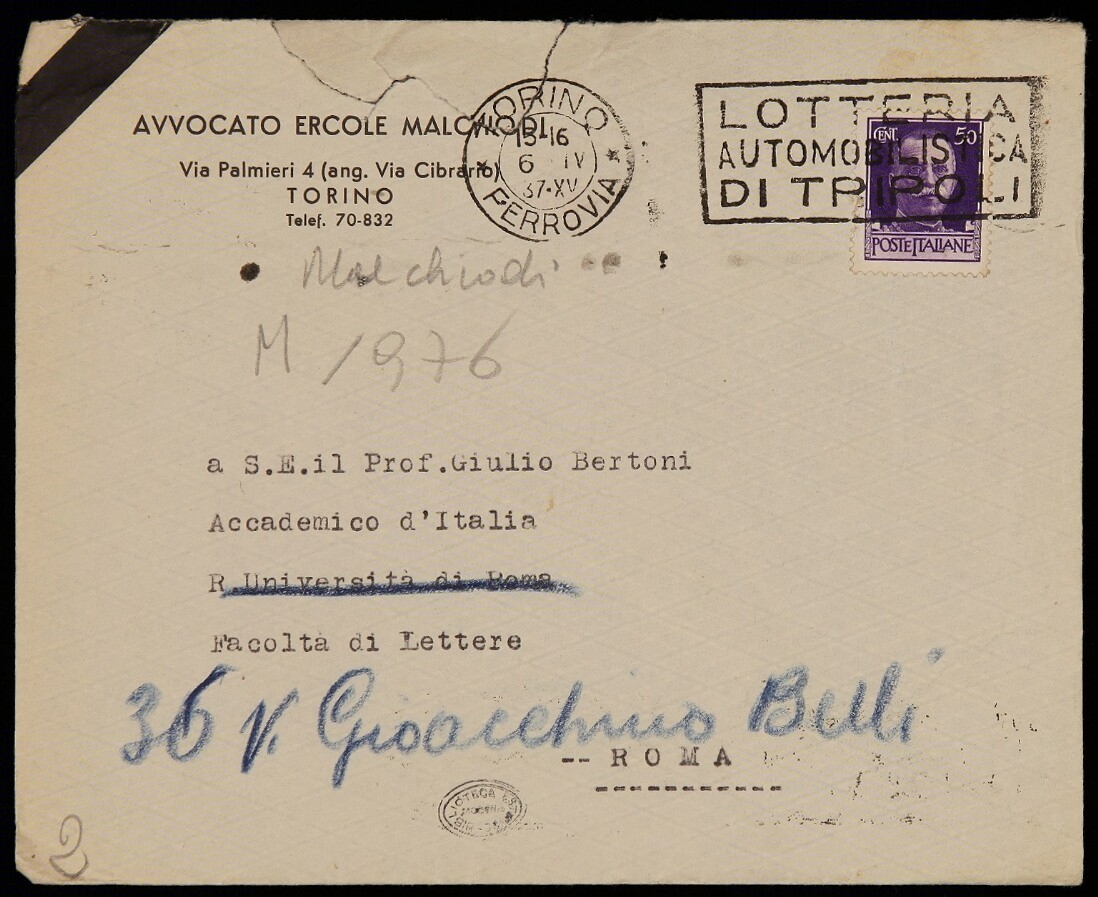 AVVOCATO ERCOLE MALCHIODI
Via Palmieri 4 (ang. Via Cibrario)
TORINO
Telef. 70-832
TORINO
15-16
6 IV
37-XV
FERROVIA
LOTTERIA
AUTOMOBILISTICA
DI TRIPOLI
CENT. 50
POSTE ITALIANE
Malchiodi
M/976
a S.E.il Prof.Giulio Bertoni
Accademico d'Italia
R Università di Roma
Facoltà di Lettere
36 V. Gioacchino Belli
-- R O M A
------------
BIBLIOTECA
2